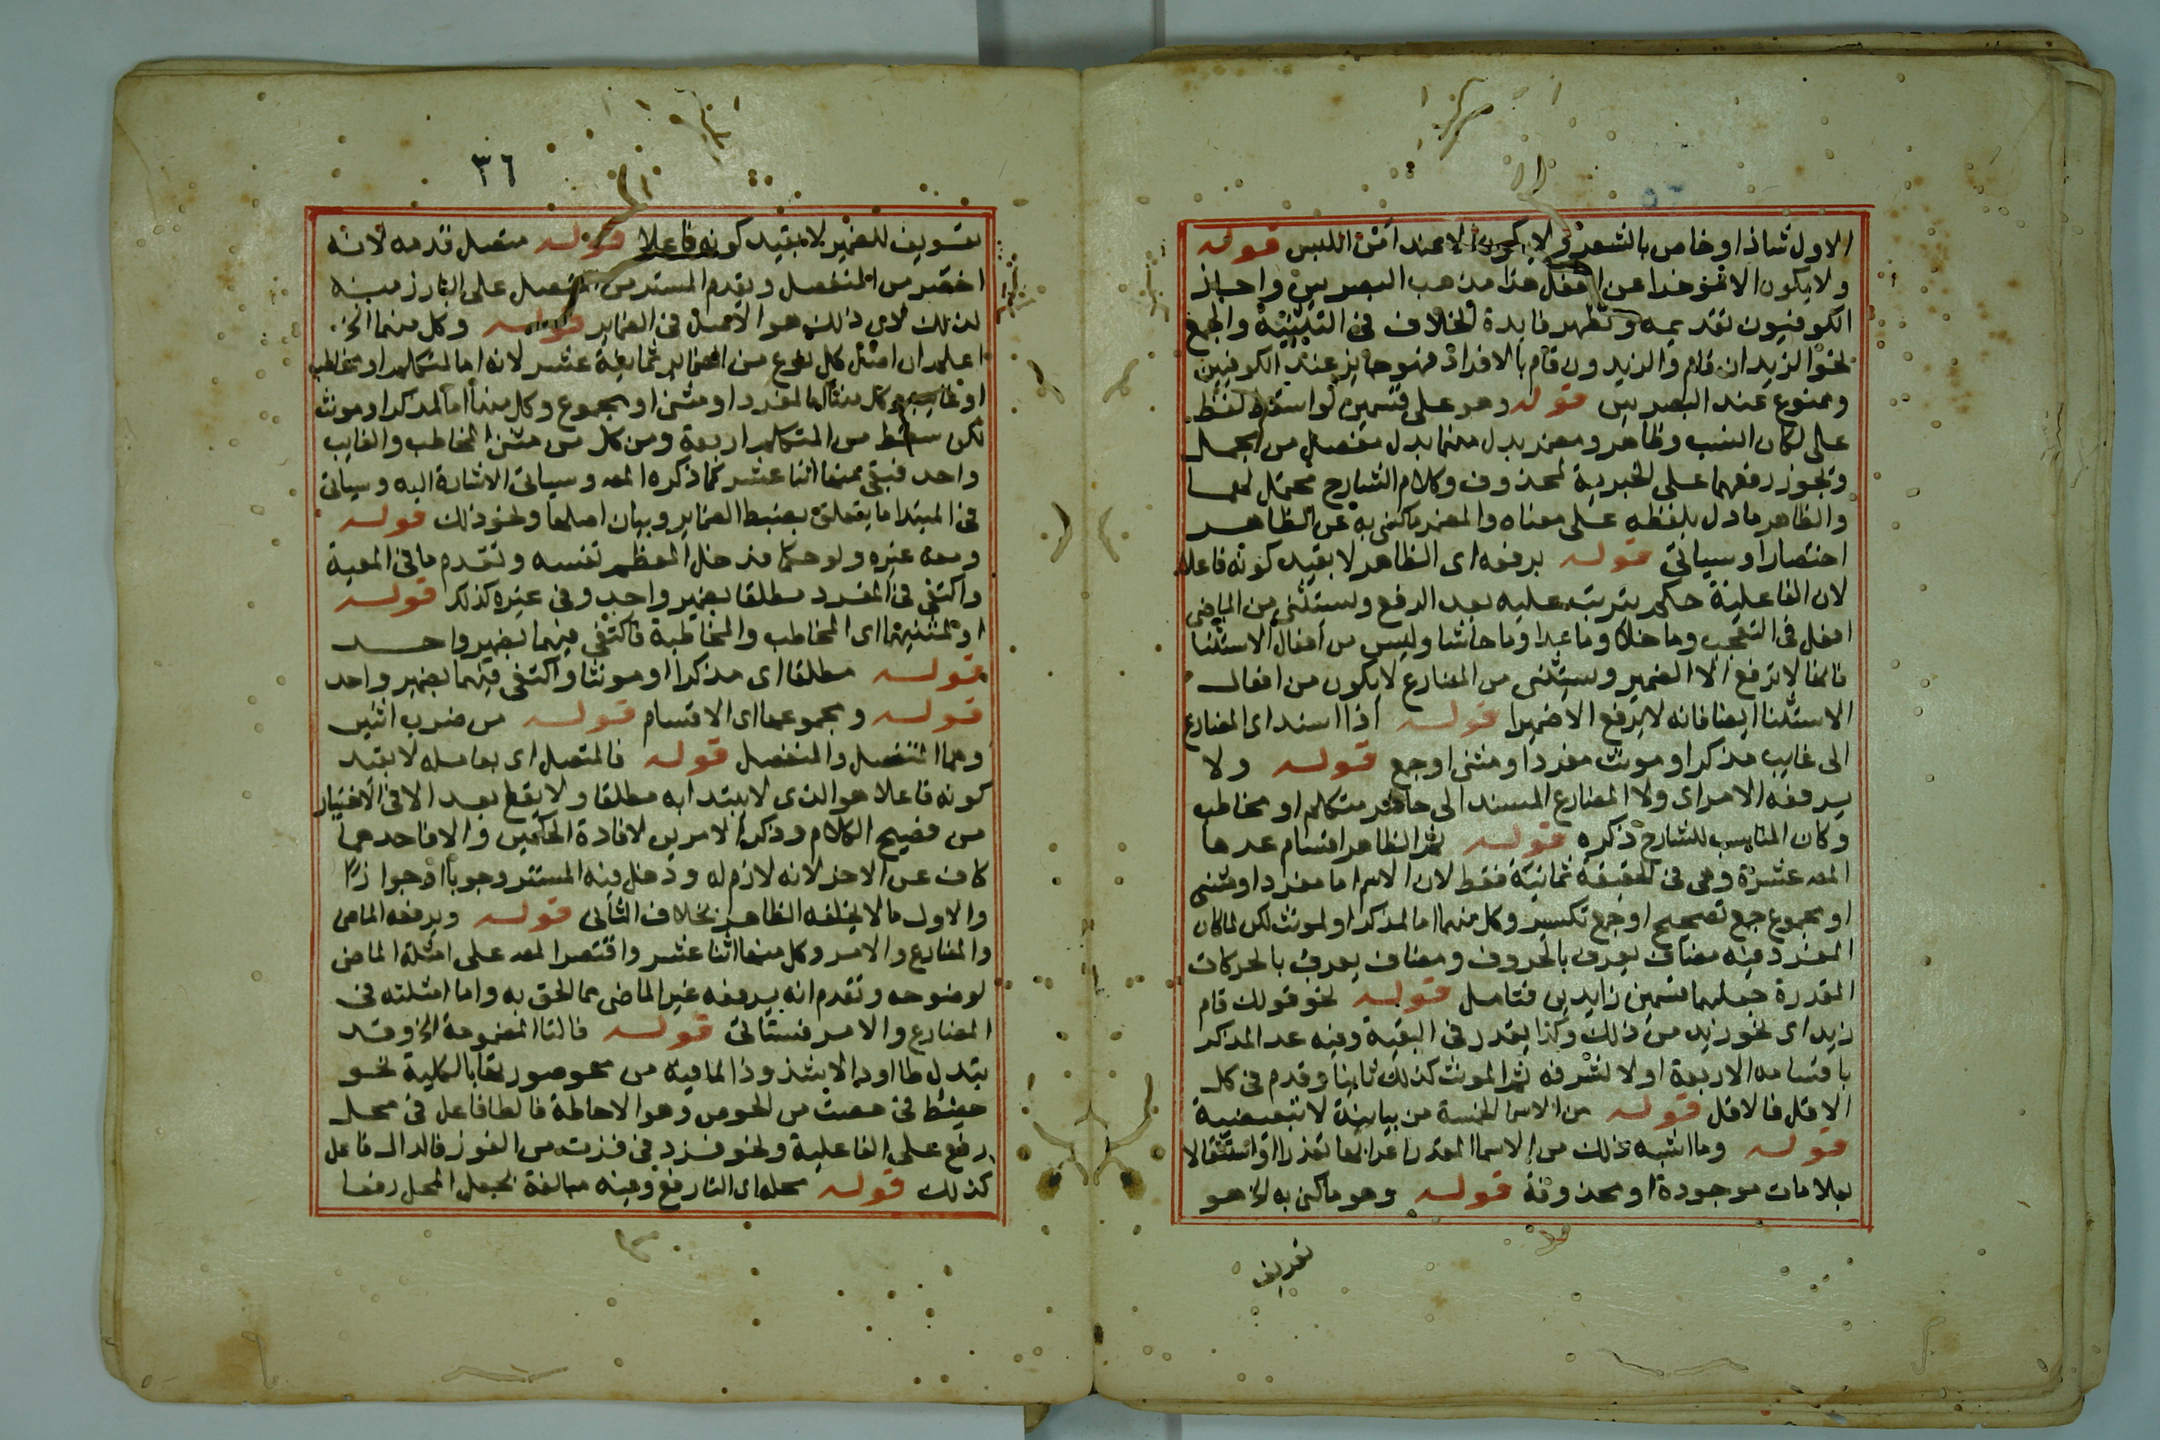 الاول شاذ او خاص بالشعر ولا يكون الا عند امن اللبس قوله
ولا يكون الا مؤخرا عن الفعل هذا مذهب البصريين واجاز
الكوفيون تقديمه وتظهر فايدة الخلاف في التثنية والجمع
نحو الزيدان قام والزيدون قام بالافراد فهو جايز عند الكوفيين
وممنوع عند البصريين قوله وهو على قسمين لو اسقط لفظ
على لكان انسب وظاهر ومضمر بدل منهما بدل مفصل من مجمل
وتجوز رفعهما على الخبرية لمحذوف وكلام الشارح محتمل لهما
والظاهر ما دل بلفظه على معناه والمضمر ما كني به عن الظاهر
اختصارا وسياتي قوله برفعه اى الظاهر لا بقيد كونه فاعلا
لان الفاعلية حكم يترتب عليه بعد الرفع ويستثنى من الماضي
افعل في التعجب وما خلا وما عدا وما حاشا وليس من افعال الاستثنا
فانها لا ترفع الا الضمير ويستثنى من المضارع لا يكون من افعال
الاستثنا ايضا فانه لا يرفع الا ضميرا قوله اذا اسند اى المضارع
الى غايب مذكر او مونث مفرد او مثنى او جمع قوله ولا
يرفعه الامر اى ولا المضارع المسند الى حاضر متكلم او مخاطب
وكان المناسب للشارح ذكره قوله ثم الظاهر اقسام عدها
المصـ عشرة وهي في الحقيقة ثمانية فقط لان الاسم اما مفرد او مثنى
او مجموع جمع تصحيح او جمع تكسير وكل منهما اما لمذكر او لمونث لكن لما كان
المفرد فيه مضاف يعرب بالحروف ومضاف يعرب بالحركات
المقدرة جعلهما قسمين زايدين فتامل قوله نحو قولك قام
زيد اى نحو زيد من ذلك وكذا يقدر في البقية وفيه عد المذكر
باقسامه الاربعة اولا لشرفه ثم المونث كذلك ثانيا وقدم في كل
الاقل فالاقل قوله من الاسما الخمسة من بيانية لا تبعيضية
قوله وما اشبه ذلك من الاسما المقدر اعرابها تعذرا او استثقالا
بعلامات موجودة او محذوفة قوله وهو ما كني به الخ هو
تعريف
٣٦
تعريف للضمير لا بقيد كونه فاعلا قوله متصل قدمه لانه
اخصر من المنفصل ويقدم المستتر من المتصل على البارز منه
لذلك لان ذلك هو الاصل في الضماير قوله وكل منهما الخ
اعلم ان اصل كل نوع من الضماير ثمانية عشر لانه اما لمتكلم او مخاطب
او غايب وكل منها اما لمفرد او مثنى او مجموع وكل منها اما لمذكر او مونث
لكن سقط من المتكلم اربعة ومن كل من مثنى المخاطب والغايب
واحد فبقي منها اثنا عشر كما ذكره المصـ وسياتي الاشارة اليه وسياتي
في المبتدا ما يتعلق بضبط الضماير وبيان اصلها ونحو ذلك قوله
ومعه غيره ولو حكما فدخل المعظم نفسه وتقدم ما في المعية
واكتفي في المفرد مطلقا بضمير واحد وفي غيره كذلك قوله
او لمثنيهما اى المخاطب والمخاطبة فاكتفي فيهما بضمير واحد
قوله مطلقا اى مذكرا او مونثا واكتفي فيهما بضمير واحد
قوله ومجموعها اى الاقسام قوله من ضرب اثنين
وهما المتصل والمنفصل قوله فالمتصل اى بعامله لا بقيد
كونه فاعلا هو الذى لا يبتدا به مطلقا ولا يقع بعد الا في الاختيار
من فصيح الكلام وذكر الامرين لافادة الحكمين والا فاحدهما
كاف عن الاخر لانه لازم له ودخل فيه المستتر وجوبا او جوازا
والاول ما لا يخلفه الظاهر بخلاف الثاني قوله ويرفعه الماضي
والمضارع والامر وكل منها اثنا عشر واقتصر المصـ على امثلة الماضي
لوضوحه وتقدم انه يرفعه غير الماضي مما الحق به واما امثلته في
المضارع والامر فستاتي قوله فالتا المضمومة الخ وقد
تبدل طا او دالا بشذوذ
حفظط في حصت من الحوص وهو الاحاطة فالطا فاعل في محل
رفع على الفاعلية ونحو فزد في فزت من الفوز فالدال فاعل
كذلك قوله محله اى التا رفع وفيه مبالغة بجعل المحل رفعا